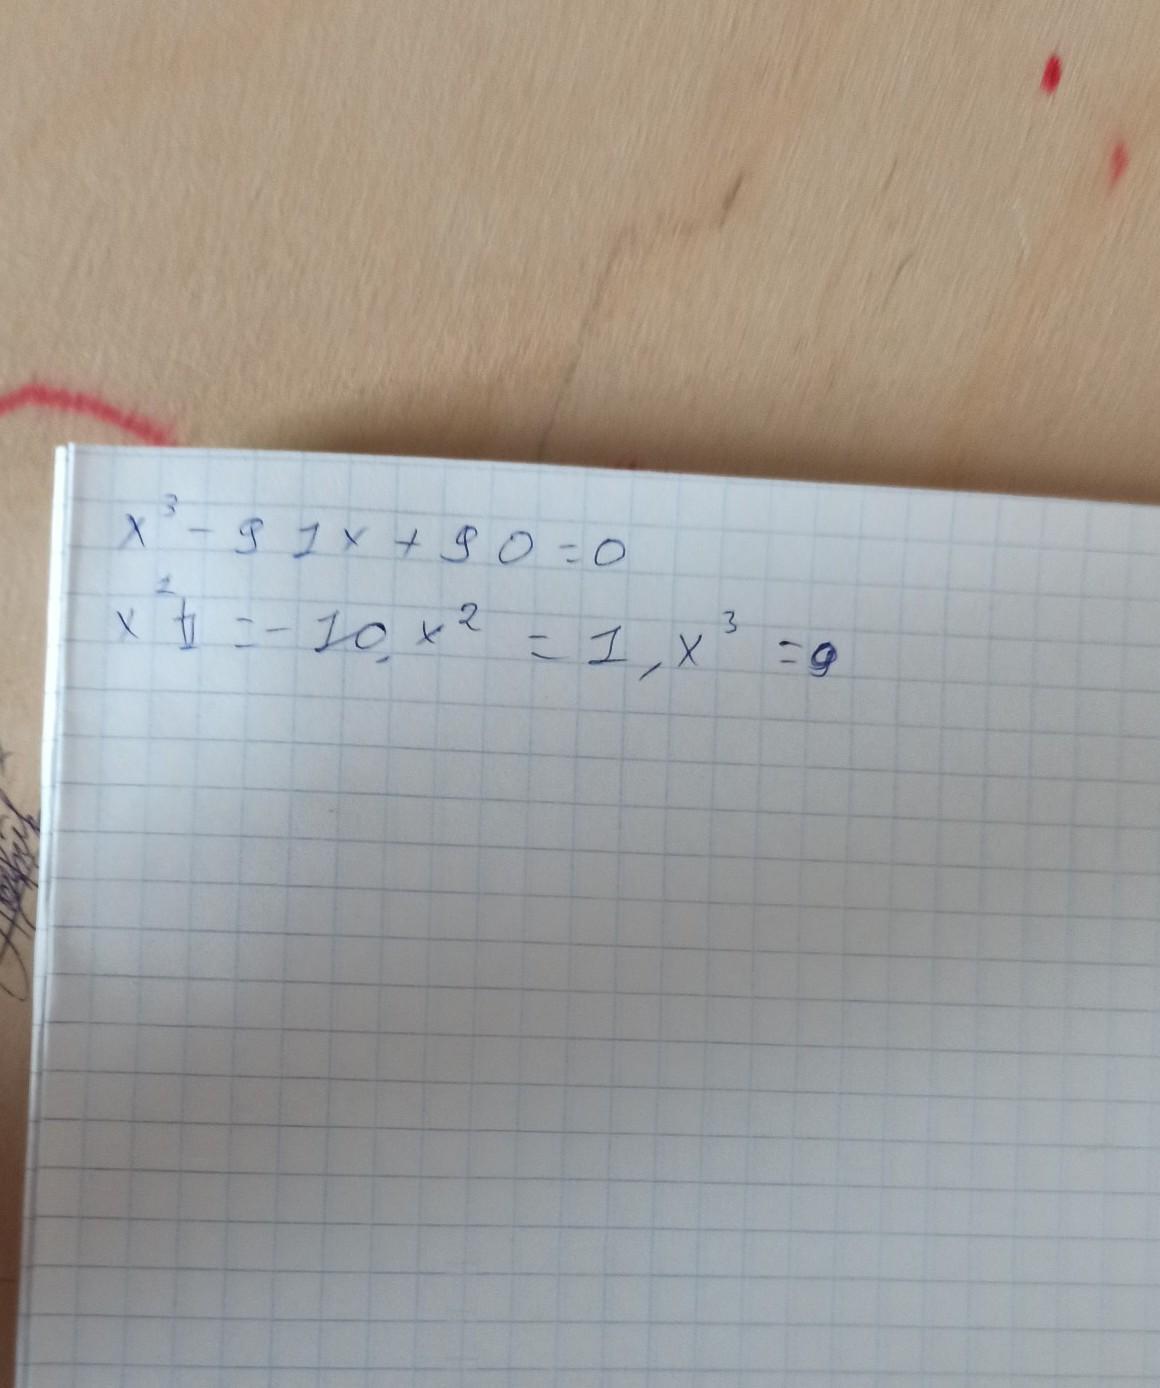 x³ - 91x + 90 = 0
x¹ = -10, x² = 1, x³ = 9